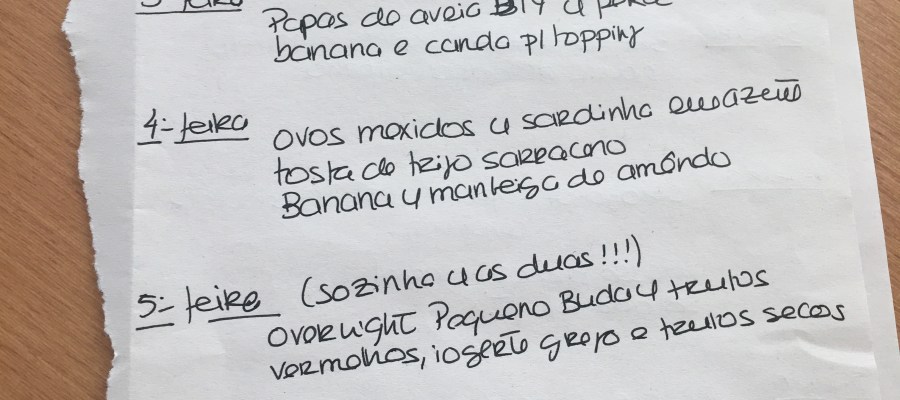 Papas de aveia c/ pera
banana e canela p/ topping
4ª-feira
ovos mexidos c/ sardinha em azeite
tosta de trigo sarraceno
Banana c/ manteiga de amêndoa
5ª-feira (sozinha c/ as duas!!!)
overnight Pequeno Buda c/ frutos
vermelhos, iogerte grego e frutos secos